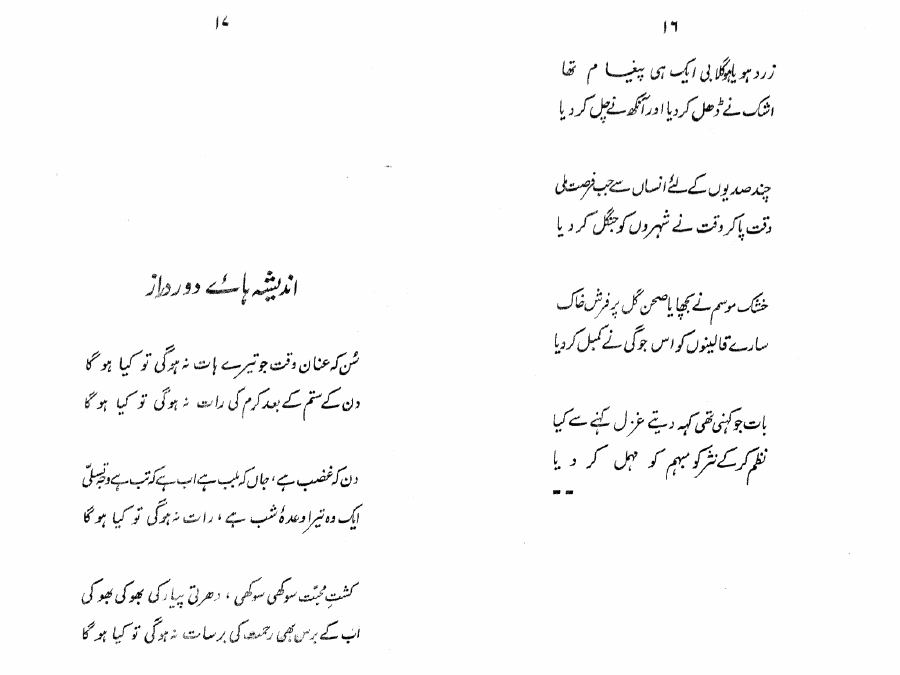 ۱۶
زرد ہو یا ہو گلابی ایک ہی پیغام تھا
اشک نے ڈھل کر دیا اور آنکھ نے چل کر دیا
چند صدیوں کے لئے انساں سے جب فرصت ملی
وقت پا کر وقت نے شہروں کو جنگل کر دیا
خشک موسم نے بچھایا صحن گل پر فرش خاک
سارے قالینوں کو اس جوگی نے کمبل کر دیا
بات جو کہنی تھی کہہ دیتے غزل کہنے سے کیا
نظم کر کے نثر کو مبہم کو مہمل کر دیا
۱۷
اندیشہ ہائے دور دراز
سُن کہ عنان وقت جو تیرے ہات نہ ہوگی تو کیا ہو گا
دن کے ستم کے بعد کرم کی رات نہ ہوگی تو کیا ہو گا
دن کہ غضب ہے، جاں کہ بلب ہے اب ہے کہ تب ہے وجہِ تسلّی
ایک وہ تیرا وعدۂ شب ہے، رات نہ ہوگی تو کیا ہو گا
کشتِ محبّت سوکھی سوکھی، دھرتی پیار کی بھوکی بھوکی
اب کے برس بھی رحمت کی برسات نہ ہوگی تو کیا ہو گا